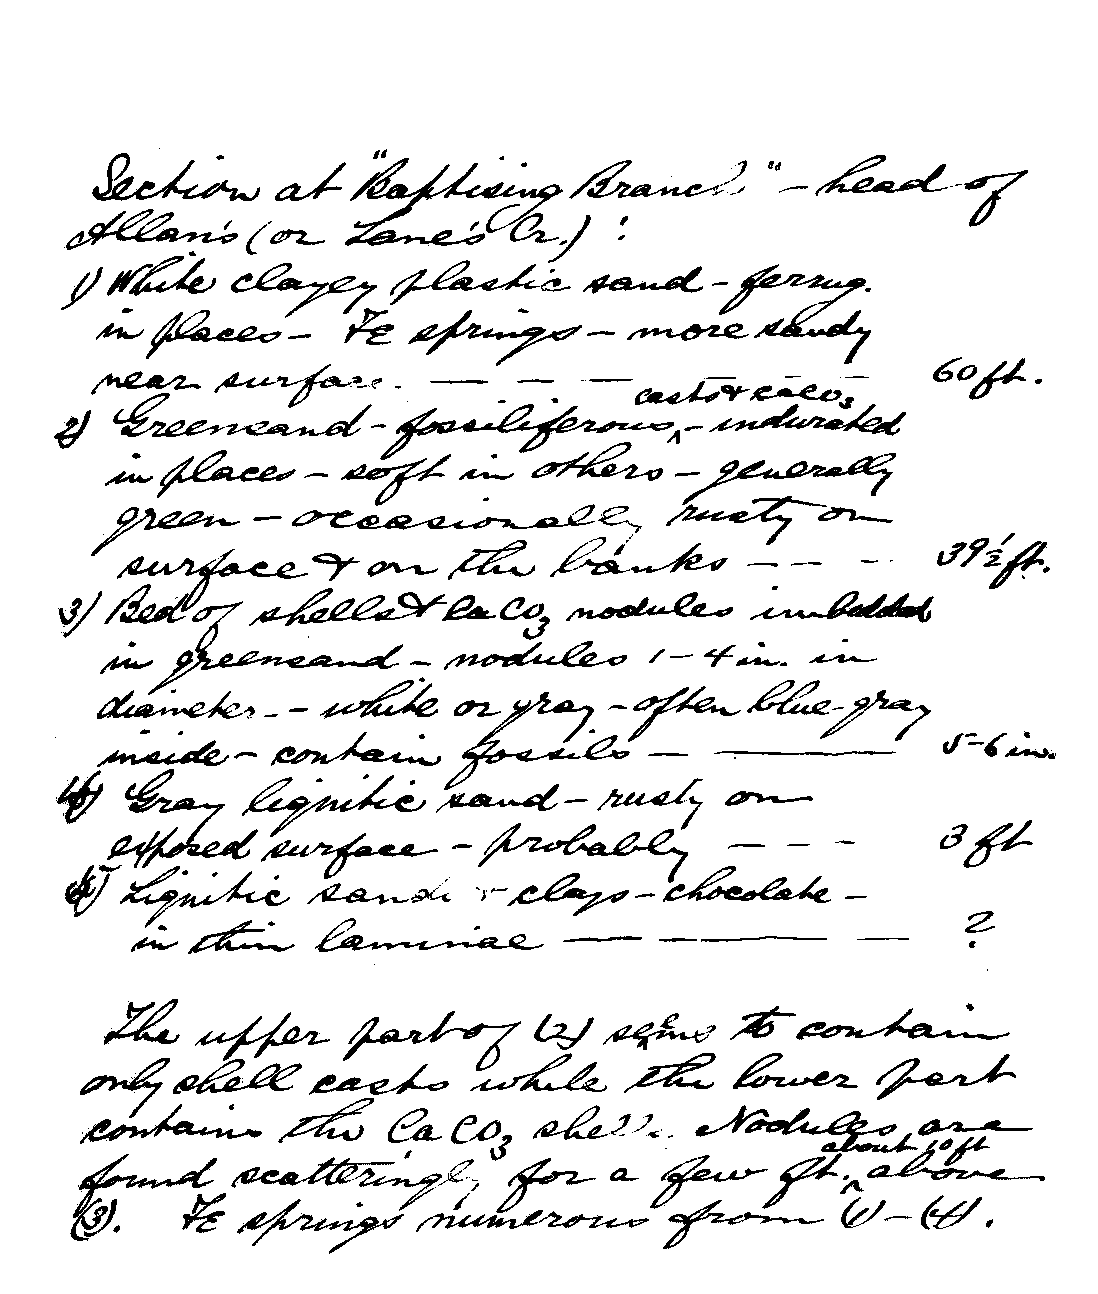 Section at "Baptising Branch" - head of
Allan's (or Lane's Cr.) :
1) White clayey plastic sand - ferrug.
in places - Fe springs - more sandy
near surface. — — — — — — 60 ft.
casts & CaCO3
2) Greensand - fossiliferous ^ - indurated
in places - soft in others - generally
green - occasionally rusty on
surface & on the banks - - - - 39 1/2 ft.
3) Bed of shells & CaCO3 nodules imbedded
in greensand - nodules 1-4 in. in
diameter - - white or gray - often blue-gray
inside - contain fossils — ——— 5-6 in.
4) Gray lignitic sand - rusty on
exposed surface - probably - - - 3 ft
5) Lignitic sands & clays - chocolate -
in thin laminae — — —— — ?
The upper part of (2) seems to contain
only shell casts while the lower part
contains the CaCO3 shells. Nodules are
about 10 ft
found scatteringly for a few ft. ^ above
(3). Fe springs numerous from (1) - (4).